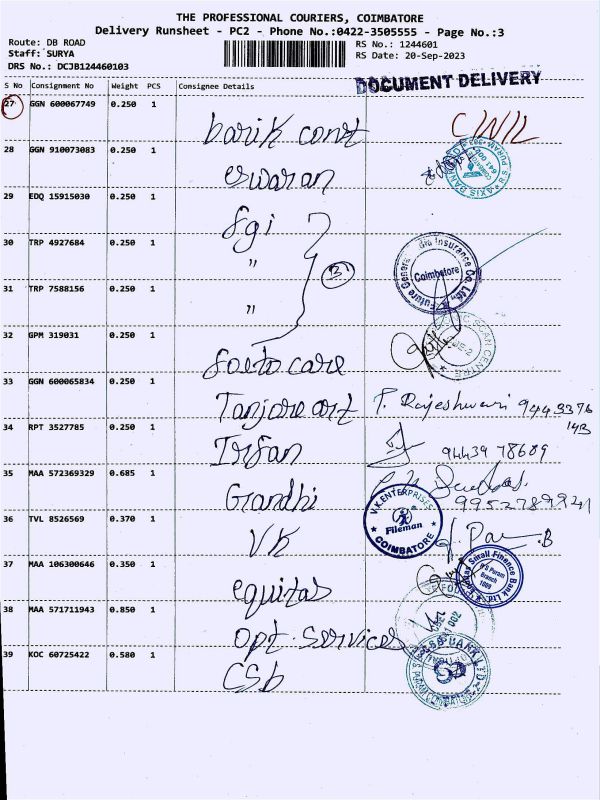 THE PROFESSIONAL COURIERS, COIMBATORE
Delivery Runsheet - PC2 - Phone No.:0422-3505555 - Page No.:3
Route: DB ROAD
Staff: SURYA
DRS No.: DCJB124460103
RS No.: 1244601
RS Date: 20-Sep-2023
DOCUMENT DELIVERY
S No Consignment No Weight PCS Consignee Details
27 GGN 600067749 0.250 1
barik const
C/N/L
28 GGN 910073083 0.250 1
eswaran
AXIS BAN
29 EDQ 15915030 0.250 1
fgi
30 TRP 4927684 0.250 1
"
3
Future Genera Insurance Co. Ltd.
Coimbatore
31 TRP 7588156 0.250 1
"
32 GPM 319031 0.250 1
foeto care
SCAN CENTRE
33 GGN 600065834 0.250 1
Tanjore art
T. Rajeshwari 944 3376
143
34 RPT 3527785 0.250 1
Irfan
9443978689
35 MAA 572369329 0.685 1
Grandhi
36 TVL 8526569 0.370 1
VK
V.K.ENTERPRISES
Fileman
COIMBATORE
37 MAA 106300646 0.350 1
equitas
Small Finance Bank Ltd
Branch
38 MAA 571711943 0.850 1
opt. services
39 KOC 60725422 0.580 1
CSb
BANK LTD